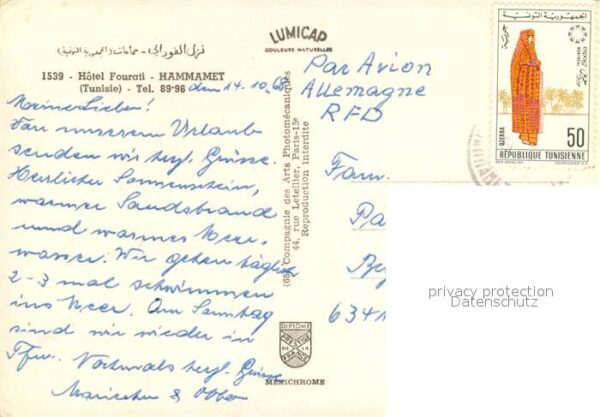 LUMICAP
COULEURS NATURELLES
نزل الفوراتي - حمامات (الجمهورية التونسية)
1539 - Hôtel Fourati - HAMMAMET
(Tunisie) - Tel. 89-96
den 14.10.68
Meine Lieben!
Von unserem Urlaub
senden wir herzl. Grüsse.
Herrlicher Sonnenschein,
warmer Sandstrand
und warmes Meer-
wasser. Wir gehen täglich
2-3 mal schwimmen
ins Meer. Am Sonntag
sind wir wieder in
Ffm. Nochmals herzl. Grüsse
(68) Compagnie des Arts Photomécaniques
44, rue Letellier, Paris-15e
Reproduction interdite
DIPLOME
PRESTIGE
DE LA
FRANCE
MEXICHROME
Par Avion
Allemagne
RFD
Fam.
Pa
Be
6341
الجمهورية التونسية
DJERBA
50
RÉPUBLIQUE TUNISIENNE
privacy protection
Datenschutz